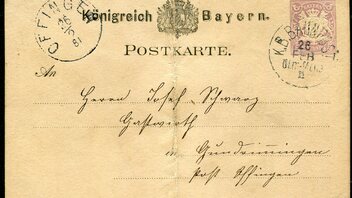 Königreich Bayern.
POSTKARTE.
OFFINGEN
26
2
81
K.B. BAHNPOST.
26
FEB
II
An
Herrn Josef Schwarz
Gastwirth
in Gundremmingen
Post Offingen